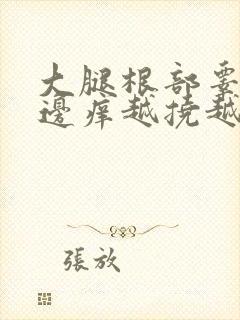 大腿根部
邊痒越挠越
張放